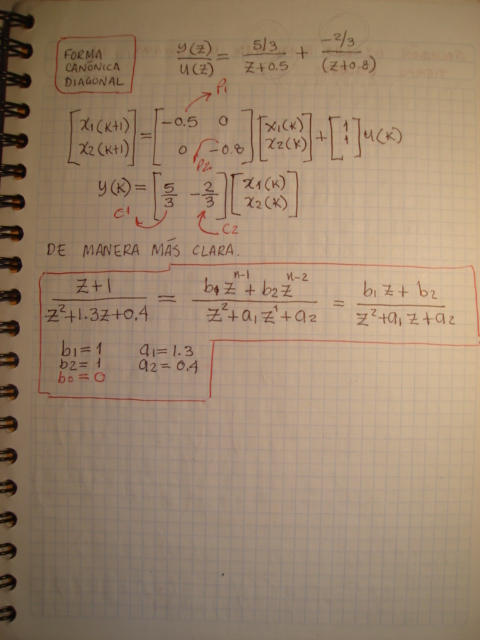 FORMA CANÓNICA DIAGONAL
y(z)/u(z) = 5/3/z+0.5 + -2/3/(z+0.8)
P1
[x1(k+1) x2(k+1)] = [-0.5 0 0 -0.8] [x1(k) x2(k)] + [1 1] u(k)
P2
y(k) = [5/3 -2/3] [x1(k) x2(k)]
C1 C2
DE MANERA MÁS CLARA.
z+1/z²+1.3z+0.4 = b1 z^n-1 + b2 z^n-2/z²+a1 z¹+a2 = b1 z + b2/z²+a1 z+a2
b1 = 1 a1 = 1.3
b2 = 1 a2 = 0.4
b0 = 0